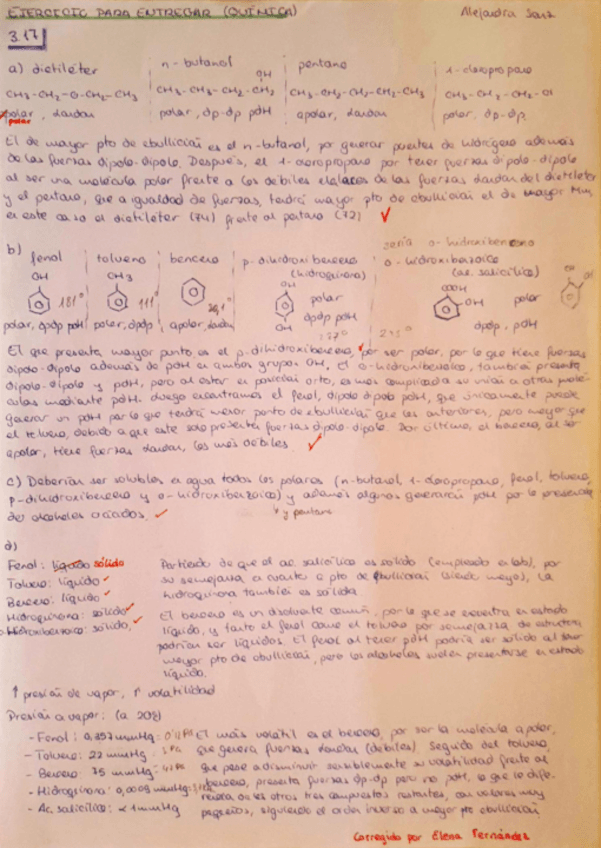 EJERCICIO PARA ENTREGAR (QUÍMICA) Alejandra Sanz
3.17
a) dietiléter n-butanol pentano 1-cloropropano
OH
CH3-CH2-O-CH2-CH3 CH3-CH2-CH2-CH2 CH3-CH2-CH2-CH2-CH3 CH3-CH2-CH2-Cl
apolar, London polar, dp-dp pdH apolar, London polar, dp-dp.
polar
El de mayor pto de ebullición es el n-butanol, por generar puentes de hidrógeno además
de las fuerzas dipolo-dipolo. Después, el 1-cloropropano por tener fuerzas dipolo-dipolo
al ser una molécula polar frente a los débiles enlaces de las fuerzas London del dietiléter
y el pentano, que a igualdad de fuerzas, tendrá mayor pto de ebullición el de mayor Mm,
en este caso el dietiléter (74) frente al pentano (72)
sería o-hidroxibenceno
b) fenol tolueno benceno p-dihidroxibenceno o-hidroxibenzoico
(hidroquinona) (ac. salicílico)
OH CH3 OH COOH
181º 111º OH
OH
polar
dpdp pdH
polar
polar, dpdp pdH polar, dpdp apolar, London dpdp, pdH
El que presenta mayor punto es el p-dihidroxibenceno, por ser polar, por lo que tiene fuerzas
dipolo-dipolo además de pdH en ambos grupos OH, el o-hidroxibenzoico, también presenta
dipolo-dipolo y pdH, pero al estar en posición orto, es más complicada su unión a otras molé-
culas mediante pdH. Luego encontramos el fenol, dipolo dipolo pdH, que únicamente puede
generar un pdH por lo que tendrá menor punto de ebullición que los anteriores, pero mayor que
el tolueno, debido a que este solo presenta fuerzas dipolo-dipolo. Por último, el benceno, al ser
apolar, tiene fuerzas London, las más débiles.
c) Deberían ser solubles en agua todos los polares (n-butanol, 1-cloropropano, fenol, tolueno,
p-dihidroxibenceno y o-hidroxibenzoico) y además algunos generarían pdH por la presencia
de alcoholes y pentano
d)
Fenol: líquido sólido
Tolueno: líquido
Benceno: líquido
Hidroquinona: sólido
o-Hidroxibenzoico: sólido.
Partiendo de que el ac. salicílico es sólido (empleado en lab), por
su semejanza en cuanto a pto de ebullición (siendo mayor), la
hidroquinona también es sólida
El benceno es un disolvente común, por lo que se encuentra en estado
líquido, y tanto el fenol como el tolueno por semejanza de estructura
podrían ser líquidos. El fenol al tener pdH podría ser sólido al tener
mayor pto de ebullición, pero los alcoholes suelen presentarse en estado
líquido.
↑ presión de vapor, ↑ volatilidad
Presión a vapor: (a 20º)
- Fenol: 0,357 mmHg
- Tolueno: 22 mmHg
- Benceno: 75 mmHg
- Hidroquinona: mmHg
- Ac. salicílico: <1 mmHg
El más volátil es el benceno, por ser la molécula apolar,
que genera fuerzas London (débiles). Seguido del tolueno,
que pese a disminuir sensiblemente su volatilidad frente al
benceno, presenta fuerzas dp-dp pero no pdH, lo que lo dife-
rencia de los otros tres compuestos restantes, con valores muy
pequeños, siguiendo el orden inverso a mayor pto ebullición
Corregido por Elena Fernández